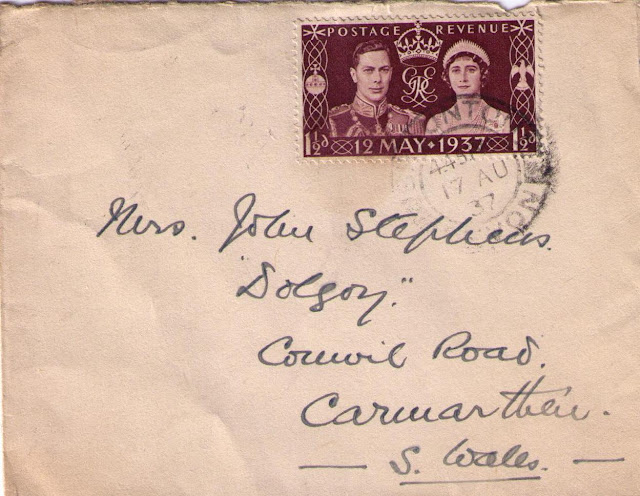 POSTAGE REVENUE
1½d 12 MAY 1937 1½d
17 AU
37
Mrs. John Stephens.
"Dolgoy."
Conwil Road.
Carmarthen.
— S. Wales. —